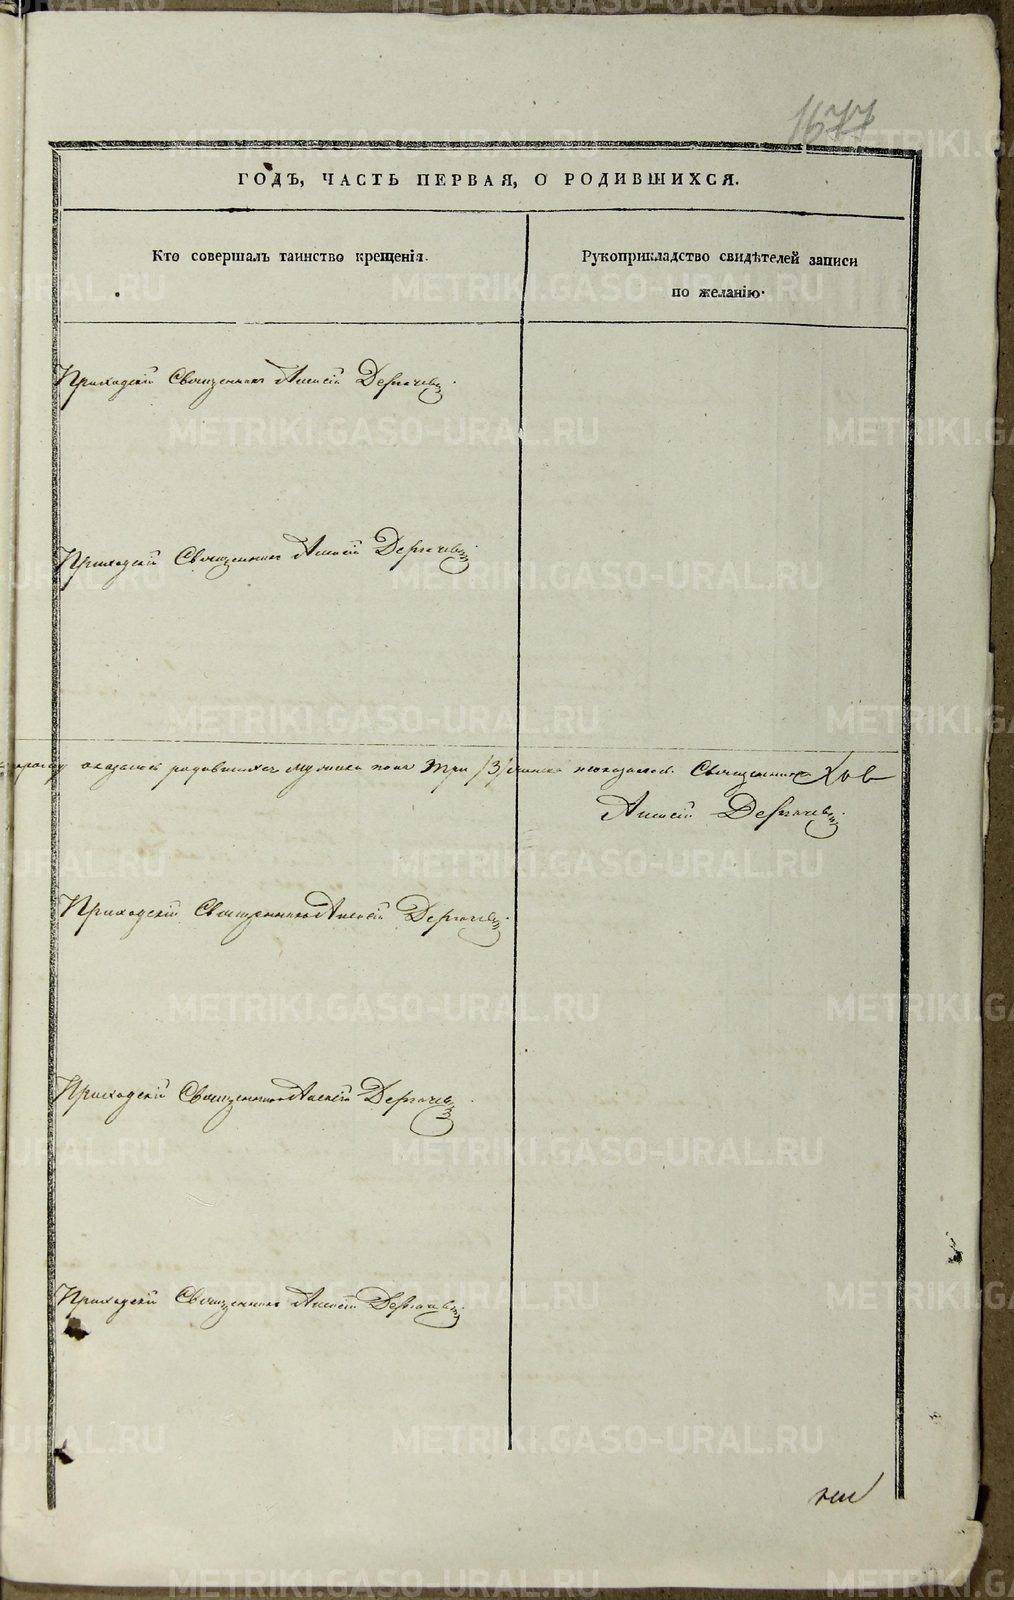 1677
ГОДЪ, ЧАСТЬ ПЕРВАЯ, О РОДИВШИХСЯ.
Кто совершалъ таинство крещенія.
Рукоприкладство свидѣтелей записи
по желанію.
Приходскій Священникъ Алексій Дергачевъ.
Приходскій Священникъ Алексій Дергачевъ.
оказалось родившихся мужеска пола три /3/ Священникъ
Алексій Дергачевъ.
Приходскій Священникъ Алексій Дергачевъ.
Приходскій Священникъ Алексій Дергачевъ.
Приходскій Священникъ Алексій Дергачевъ.
METRIKI.GASO-URAL.RU